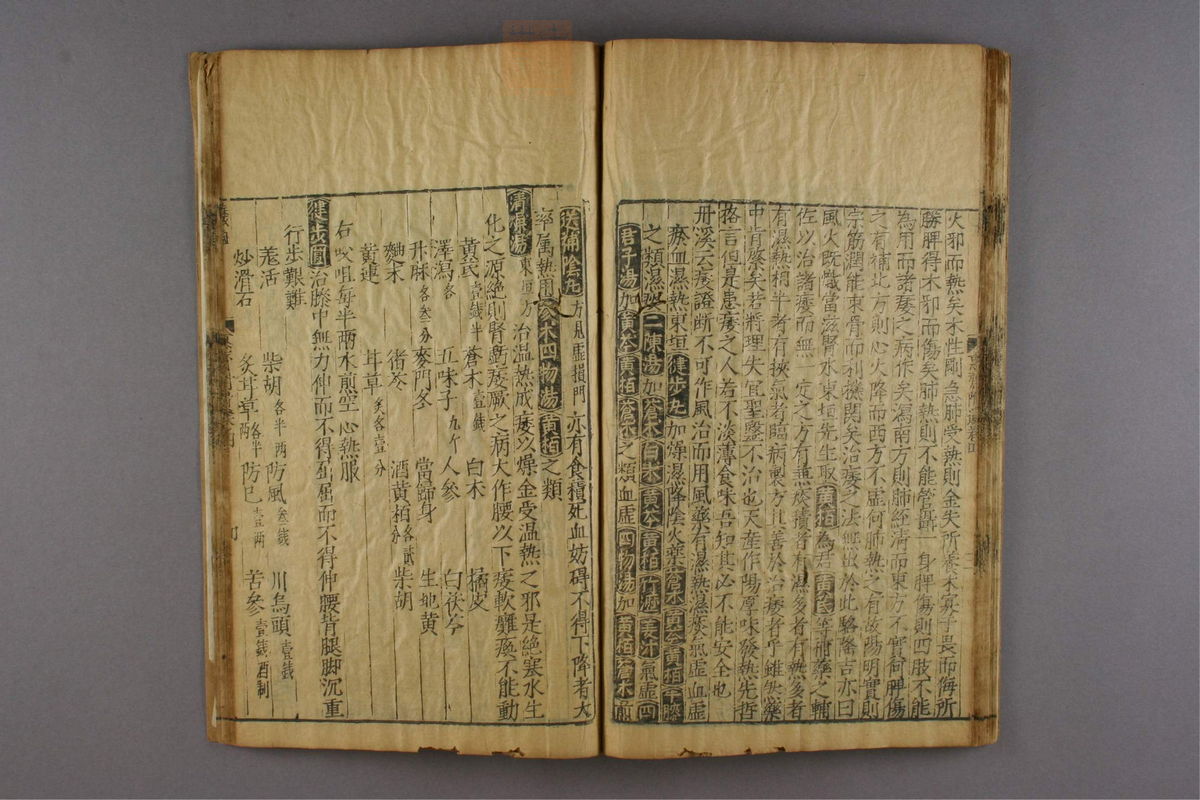 火邪而熱矣木性剛急肺受熱則金失所養木寡于畏而侮所
勝脾得木邪而傷矣肺熱則不能管攝一身脾傷則四肢不能
為用而諸痿之病作矣瀉南方則肺經清而東方不實何脾傷
之有補北方則心火降而西方不虛何肺熱之有故陽明實則
宗筋潤能束骨而利機関矣治痿之法無出於此駱隆吉亦曰
風火既熾當滋腎水東垣先生取黃栢為君黃芪等補藥之輔
佐以治諸痿而無一定之方有兼痰積者有濕多者有熱多者
有濕熱相半者有挾氣者臨病製方其善於治痿者乎雖失藥
中肯綮矣若將理失宜聖醫不治也天産作陽厚味發熱先哲
格言但是患痿之人若不淡薄食味吾知其必不能安全也
丹溪云痿證断不可作風治而用風藥有濕熱濕痰氣虛血虛
瘀血濕熱東垣健步丸加燥濕降陰火藥蒼朮黃芩黃栢牛膝
之類濕痰二陳湯加蒼朮白朮黃芩黃栢竹瀝姜汁氣虛四
君子湯加黃芩黃栢蒼朮之類血虛四物湯加黃栢蒼朮煎
送補陰丸方見虛損門亦有食積死血妨碍不得下降者大
率属熱用參朮四物湯黃栢之類
清燥湯東垣方治温熱成痿以燥金受温熱之邪是絶寒水生
化之源絶則腎虧痿厥之病大作腰以下痿軟癱瘓不能動
黃芪壹錢半 蒼朮壹錢 白朮 橘皮
澤瀉各 五味子九个 人參 白茯苓
升麻各叁分 麥門冬 當歸身 生地黃
麯末 猪苓 酒黃栢各貳分 柴胡
黃連 甘草炙各壹分
右㕮咀每半兩水煎空心熱服
健步圓治膝中無力伸而不得屈屈而不得伸腰背腿脚沉重
行步艱難
羌活 柴胡各半兩 防風叁錢 川烏頭壹錢
炒滑石 炙甘草各半兩 防已壹兩 苦參壹錢酒制